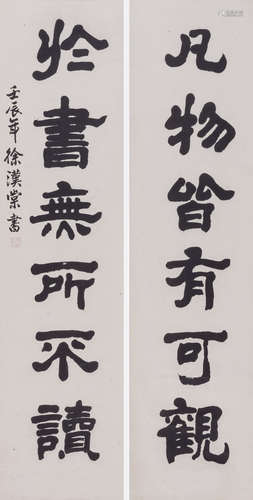 凡物皆有可觀
於書無所不讀
壬辰年徐漢棠書